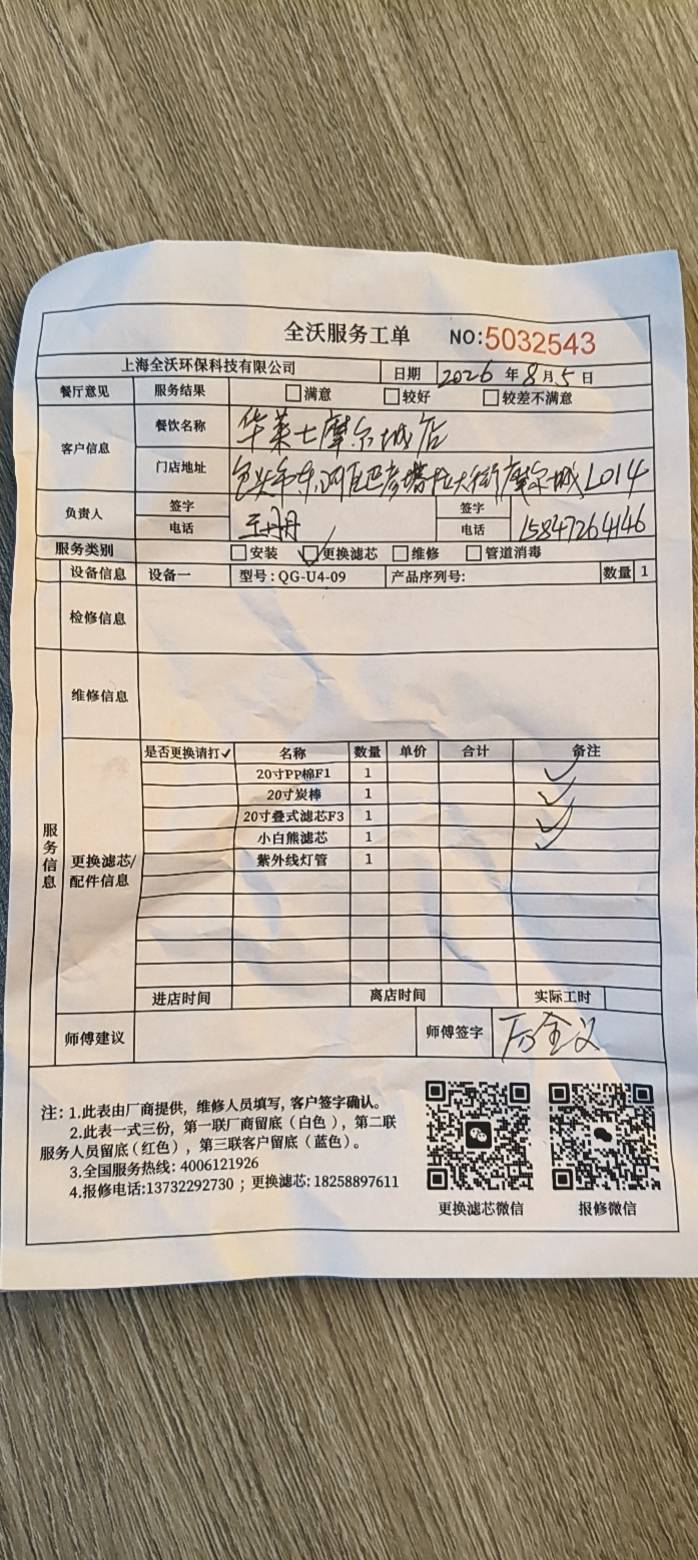 全沃服务工单 NO:5032543
上海全沃环保科技有限公司 日期 2026 年 8 月 5 日
餐厅意见 服务结果 □满意 □较好 □较差不满意
客户信息 餐饮名称 华莱士摩尔城店
门店地址 包头市东河区巴彦塔拉大街摩尔城L014
负责人 签字 王丹丹 签字
电话 电话 15847264146
服务类别 □安装 ☑更换滤芯 □维修 □管道消毒
设备信息 设备一 型号:QG-U4-09 产品序列号: 数量 1
检修信息
维修信息
服务信息
更换滤芯/配件信息
是否更换请打✓ 名称 数量 单价 合计 备注
20寸PP棉F1 1 ✓
20寸炭棒 1 ✓
20寸叠式滤芯F3 1 ✓
小白熊滤芯 1 ✓
紫外线灯管 1
进店时间 离店时间 实际工时
师傅建议 师傅签字
注: 1.此表由厂商提供, 维修人员填写, 客户签字确认。
2.此表一式三份, 第一联厂商留底(白色), 第二联
服务人员留底(红色), 第三联客户留底(蓝色)。
3.全国服务热线: 4006121926
4.报修电话:13732292730 ; 更换滤芯: 18258897611
更换滤芯微信 报修微信